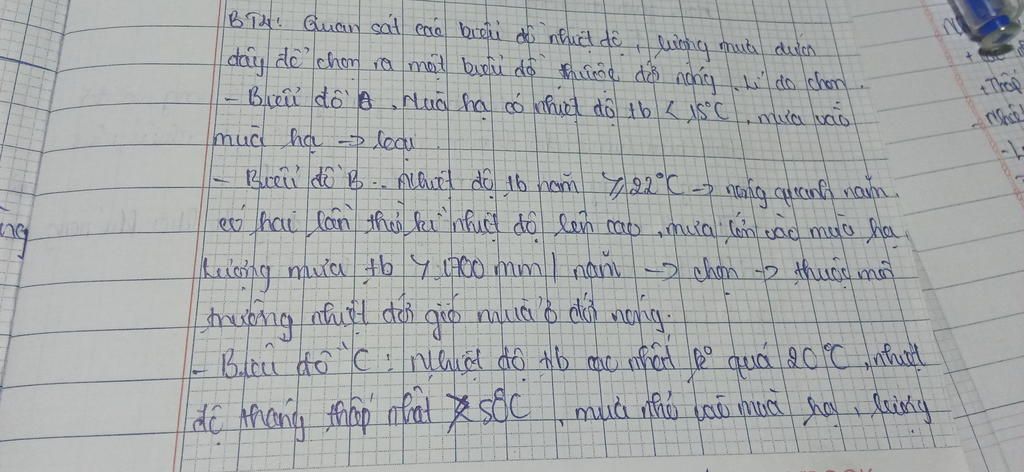 BT4: Quan sát các biểu đồ nhiệt độ, lượng mưa dưới
đây để chọn ra một biểu đồ thuộc đới nóng. Lí do chọn.
- Biểu đồ A. Mùa hạ có nhiệt độ tb < 15°C, mưa vào
mùa hạ → loại
- Biểu đồ B.. Nhiệt độ tb năm > 22°C → nóng quanh năm.
có hai lần thời kì nhiệt độ lên cao, mưa lớn vào mùa hạ
Lượng mưa tb > 1700 mm / năm → chọn → thuộc môi
trường nhiệt đới gió mùa ở đới nóng.
- Biểu đồ C: Nhiệt độ tb cao nhất quá 20°C, nhiệt
độ tháng thấp nhất 5°C, mưa nhỏ vào mùa hạ, lượng
ng
+
+ Thời
- Nhiệt